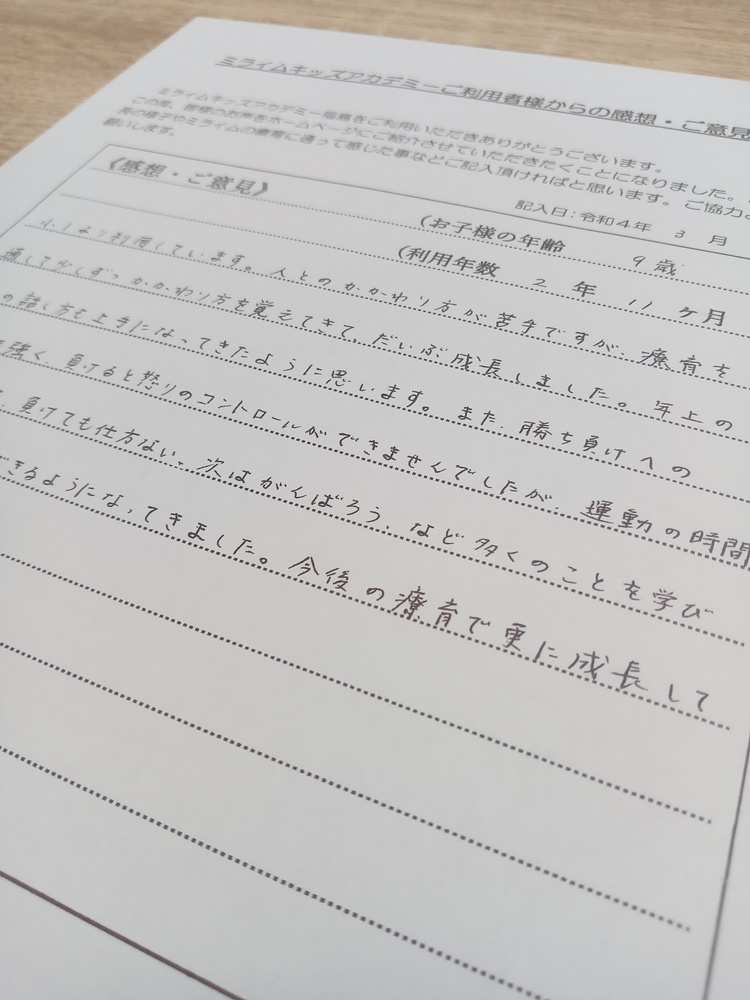 ミライムキッズアカデミーご利用者様からの感想・ご意見
ミライムキッズアカデミー福島をご利用いただきありがとうございます。
この度、皆様のお声をホームページにご紹介させていただきたくことになりました。
長の様子やミライムの療育に通って感じた事などご記入頂ければと思います。ご協力
願いします。
記入日:令和4年 3 月
《感想・ご意見》
(お子様の年齢 9 歳
(利用年数 2 年 11 ヶ月
小1より利用しています。人とのかかわり方が苦手ですが、療育を
通して少しずつかかわり方を覚えてきて、だいぶ成長しました。年上の
の話し方も上手になってきたように思います。また、勝ち負けへの
強く、負けると怒りのコントロールができませんでしたが、運動の時間
、負けても仕方ない、次はがんばろう、など多くのことを学び
できるようになってきました。今後の療育で更に成長して